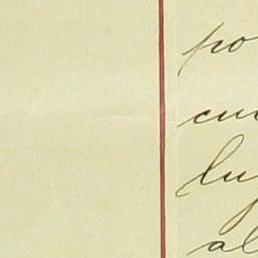 po
cu
lu
al